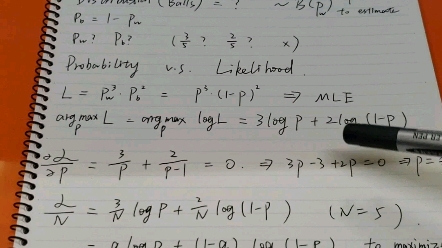 (Balls) = ? ~ B(Pw) to estimate
Pb = 1 - Pw
Pw? Pb? ( 3/5 ? 2/5 ? x )
Probability v.s. Likelihood.
L = Pw³ · Pb² = P³ · (1-P)² ⇒ MLE
argmax_p L = argmax_p log L = 3 log P + 2 log (1-P)
∂L/∂P = 3/P + 2/(P-1) = 0. ⇒ 3p-3+2p=0 ⇒ p=
L/N = 3/N log P + 2/N log (1-P) (N=5)
= a log P + (1-a) log (1-P) to maximiz